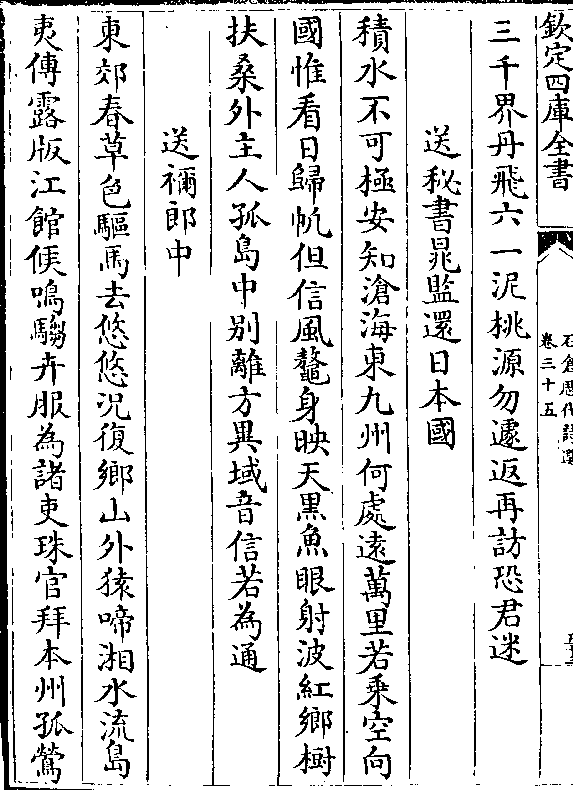 欽定四庫全書
石倉歷代詩選
卷三十五
三千界丹飛六一泥桃源勿遽返再訪恐君迷
送秘書晁監還日本國
積水不可極安知滄海東九州何處遠萬里若乘空向
國惟看日歸帆但信風鰲身映天黒魚眼射波紅鄉樹
扶桑外主人孤島中别離方異域音信若為通
送禰郎中
東郊春草色驅馬去悠悠况復鄉山外猿啼湘水流島
夷傳露版江館候鳴騶卉服為諸吏珠官拜本州孤鶯